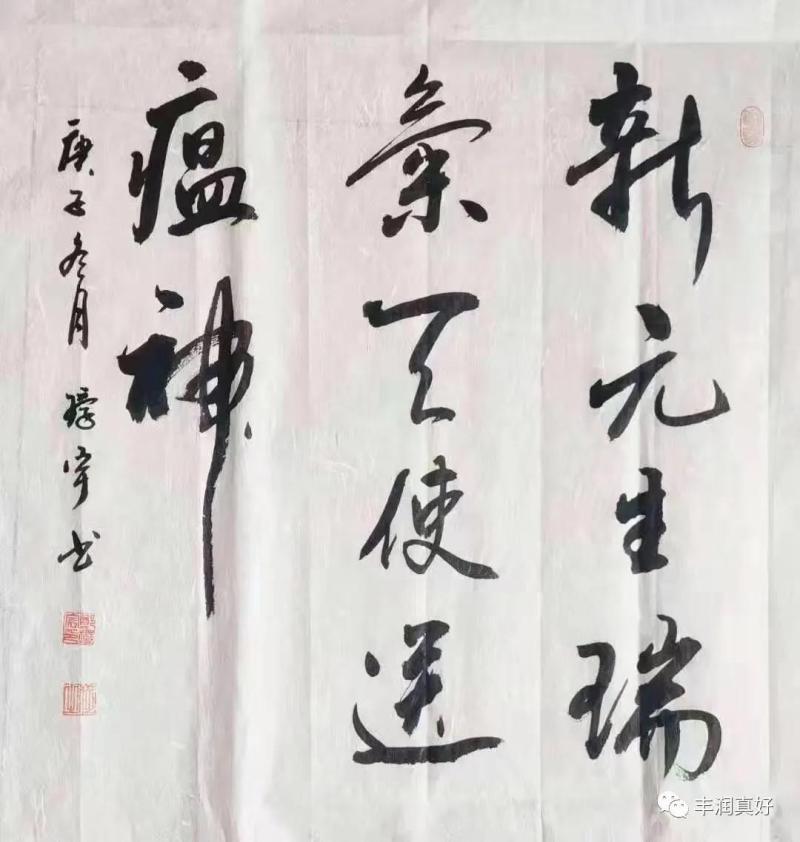 新元生瑞
氣天使送
瘟神
庚子冬月
宇书
丰润真好